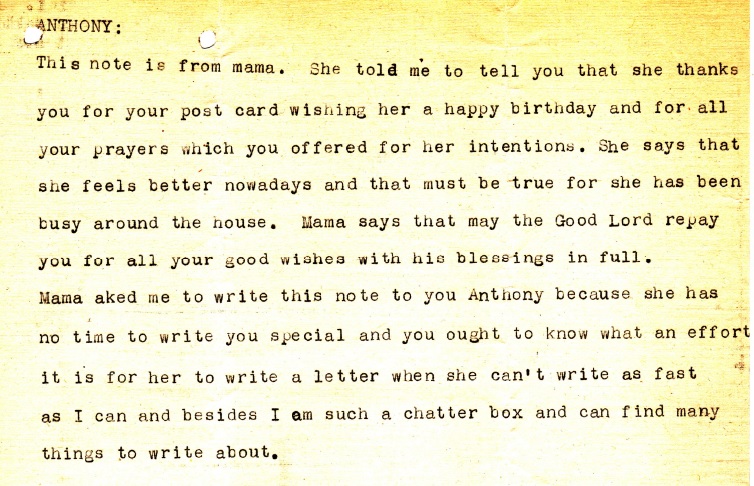 ANTHONY:
This note is from mama. She told me to tell you that she thanks
you for your post card wishing her a happy birthday and for all
your prayers which you offered for her intentions. She says that
she feels better nowadays and that must be true for she has been
busy around the house. Mama says that may the Good Lord repay
you for all your good wishes with his blessings in full.
Mama aked me to write this note to you Anthony because she has
no time to write you special and you ought to know what an effort
it is for her to write a letter when she can't write as fast
as I can and besides I am such a chatter box and can find many
things to write about.